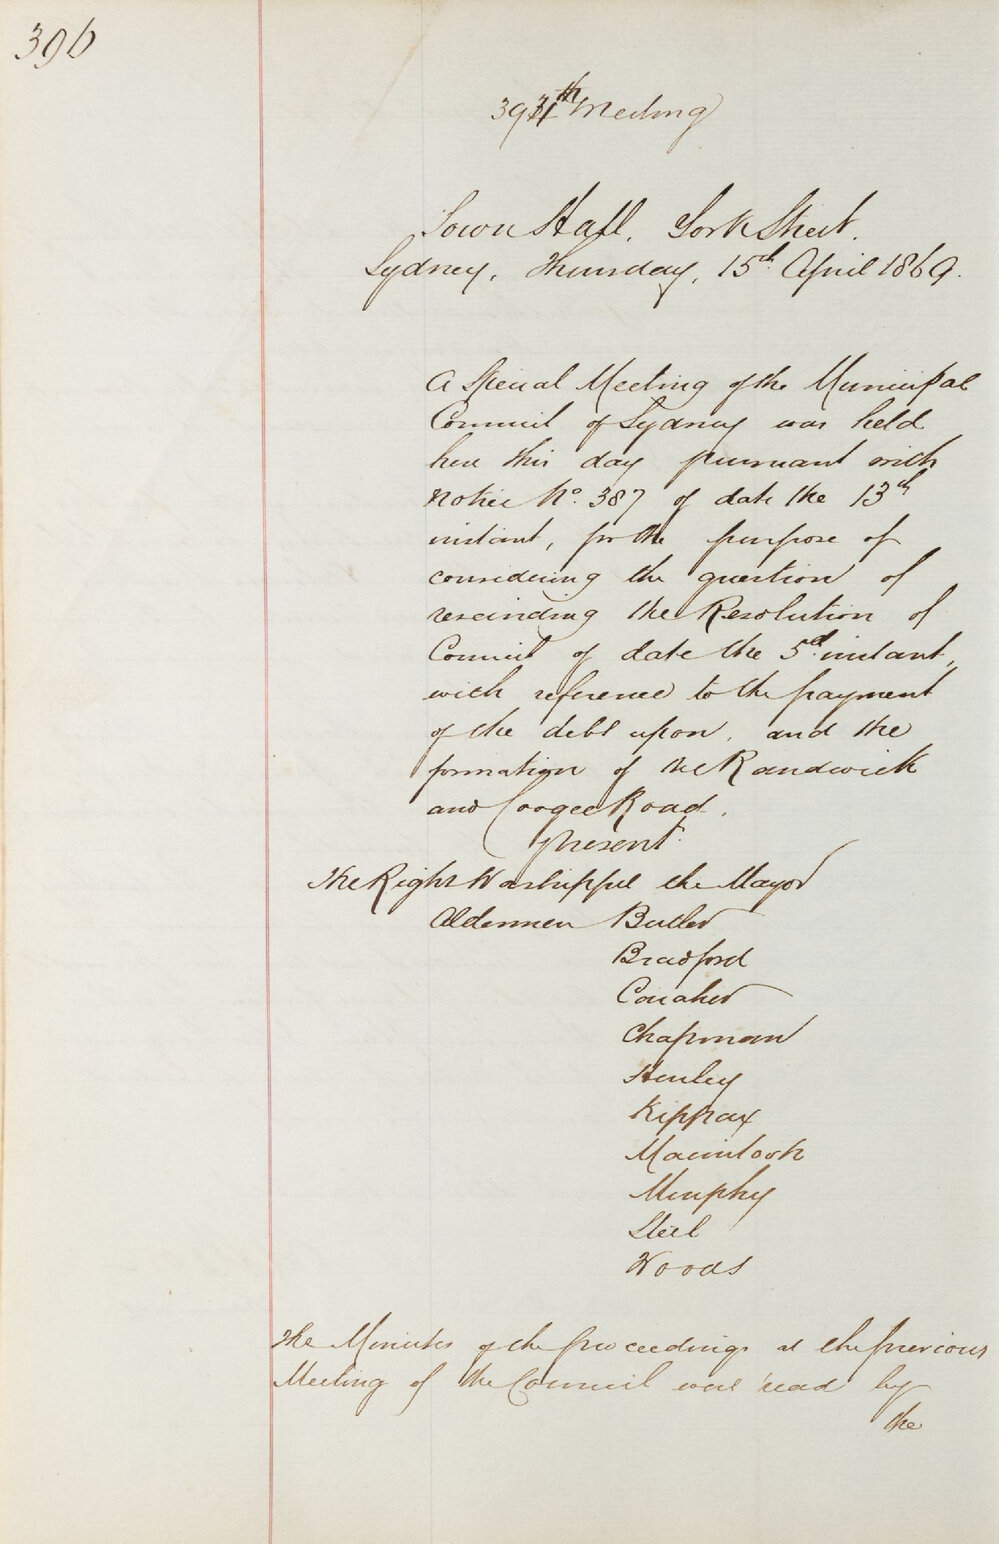 396
Meeting
Town Hall, York Street.
Sydney, Thursday, 15th April 1869.
A Special Meeting of the Municipal
Council of Sydney was held
here this day pursuant with
notice No. 387 of date the 13th
instant, for the purpose of
considering the question of
rescinding the Resolution of
Council of date the 5th instant,
with reference to the payment
of the debt upon, and the
formation of the Randwick
and Coogee Road.
Present
The Right Worshipful the Mayor
Aldermen Butler
Bradford
Conaher
Chapman
Henley
Kippax
Macintosh
Murphy
Steel
Woods
The Minutes of the proceedings at the previous
Meeting of the Council were read by
the